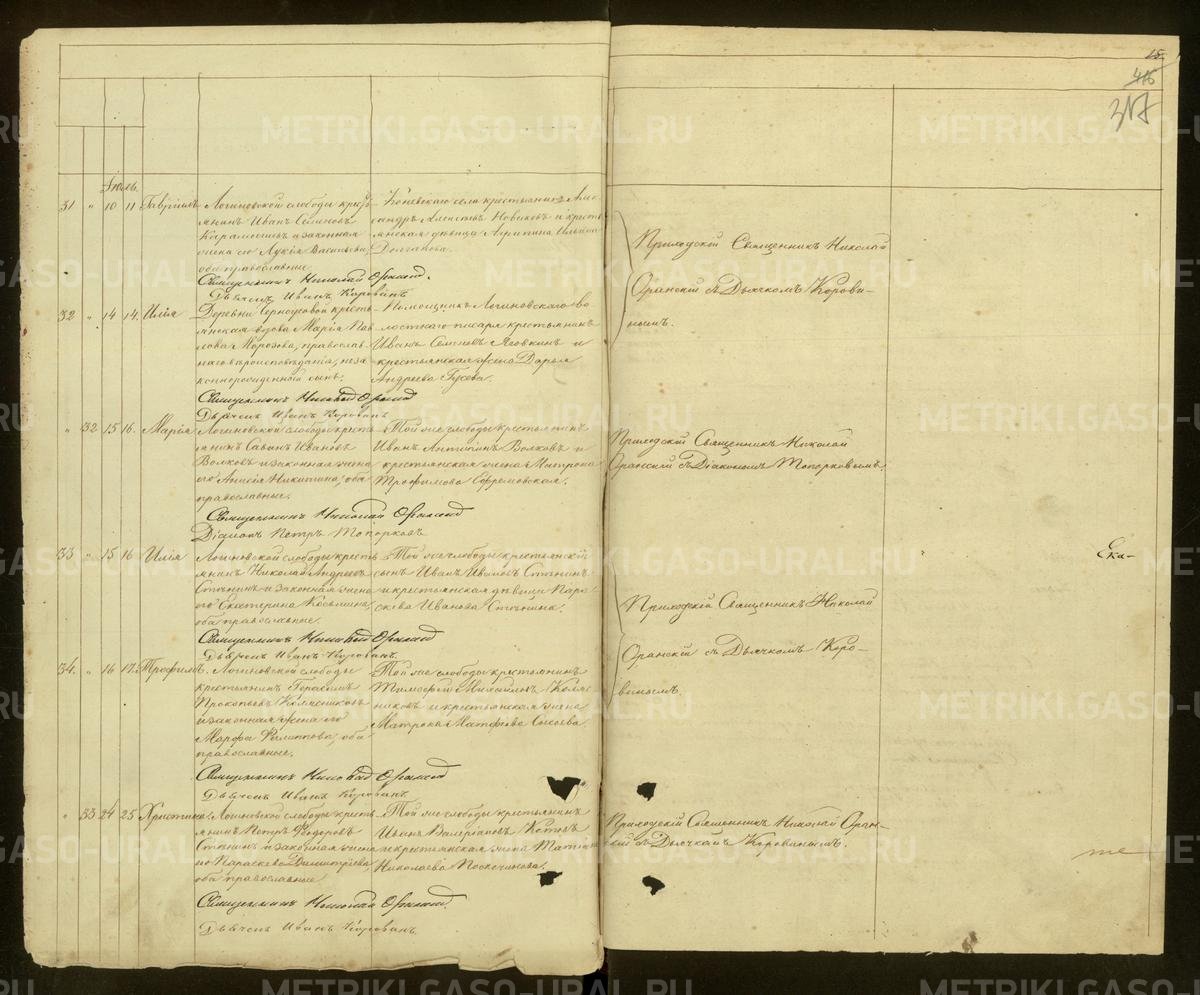 15.
416
317
Іюль.
31 " 10 11 Гавріилъ
Логиновской слободы кресть-
янинъ Иванъ Семеновъ
Карамышевъ и законная
жена его Лукія Васильева,
оба православные.
Коневскаго села крестьянинъ Але-
ксандръ Алексѣевъ Новиковъ и кресть-
янская дѣвица Агрипина Ильина
Долганова.
Священникъ Николай Оранской.
Дьячекъ Иванъ Коровинъ
Приходскій Священникъ Николай
Оранскій съ Дьячкомъ Корови-
нымъ.
32 " 14 14. Илія
Деревни кресть-
янская вдова Марія Пав-
лова Морозова, православ-
наго вѣроисповѣданія, неза-
коннорожденный сынъ.
Помощникъ Логиновскаго во-
лостнаго писаря крестьянинъ
Иванъ Семеновъ Яговкинъ и
крестьянская жена Дарья
Андреева Гусева.
Священникъ Николай Оранской
Дьячекъ Иванъ Коровинъ
" 32 15 16. Марія
Логиновской слободы кресть-
янинъ Савинъ Ивановъ
Волковъ и законная жена
его Анисія Никитина, оба
православные.
Той же слободы крестьянинъ
Иванъ Антипинъ Волковъ и
крестьянская жена Матрона
Трофимова Ефремовская.
Священникъ Николай Оранской
Діаконъ Петръ Топорковъ
Приходскій Священникъ Николай
Оранскій съ Діакономъ Топорковымъ
33 " 15 16 Илія
Логиновской слободы кресть-
янинъ Николай Андреевъ
Стенинъ и законная жена
его Екатерина Косьмина,
оба православные.
Той же слободы крестьянскій
сынъ Иванъ Ивановъ Стенинъ
и крестьянская дѣвица Пара-
скева Иванова Стенина.
Священникъ Николай Оранской
Дьячекъ Иванъ Коровинъ.
Приходскій Священникъ Николай
Оранскій съ Дьячкомъ Коро-
винымъ.
Ека-
34. " 16 17. Трофимъ.
Логиновской слободы
крестьянинъ Герасимъ
Прокопьевъ Колясниковъ
и законная жена его
Марфа Филиппова, оба
православные.
Той же слободы крестьянинъ
Тимофей Михайловъ Коляс-
никовъ и крестьянская жена
Матрона Матфеева Сысоева.
Священникъ Николай Оранской
Дьячекъ Иванъ Коровинъ
" 33 24 25 Христина.
Логиновской слободы кресть-
янинъ Петръ Ѳедоровъ
Стенинъ и законная жена
его Параскева Димитріева,
оба православные
Той же слободы крестьянинъ
Иванъ Валеріановъ Котовъ
и крестьянская жена Татіана
Николаева Поскочинова.
Священникъ Николай Оранской.
Дьячекъ Иванъ Коровинъ.
Приходскій Священникъ Николай Оран-
скій съ Дьячкомъ Коровинымъ.
те
METRIKI.GASO-URAL.RU